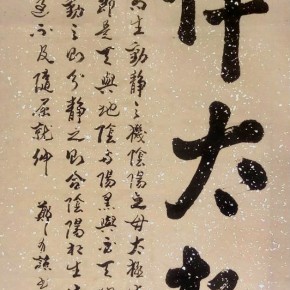 太
生動靜之機陰陽之母太極
即是天與地陰與陽黑與白天
動之則分靜之則合陰陽相生
不及隨屈就伸